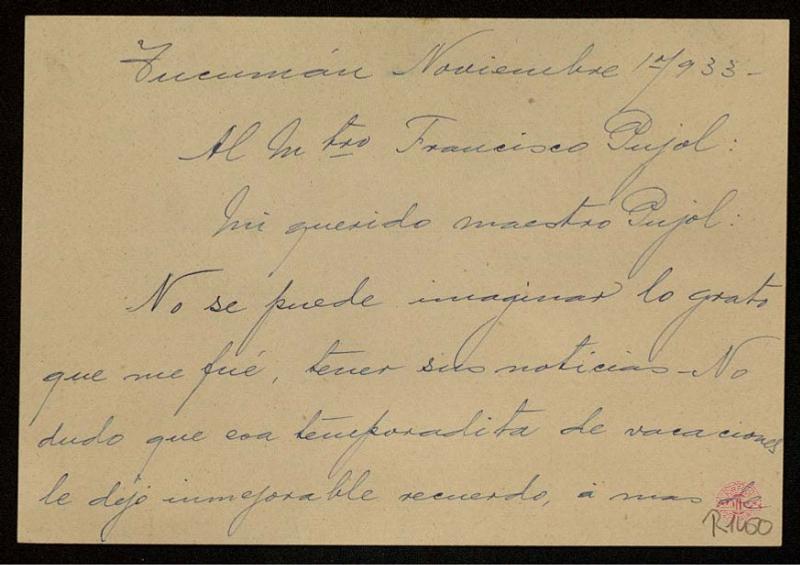 Tucumán Noviembre 1º/933-
Al Mtro Francisco Pujol:
Mi querido maestro Pujol:
No se puede imaginar lo grato
que me fué, tener sus noticias-No
dudo que esa temporadita de vacaciones
le dejó inmejorable recuerdo, á mas de
R1460